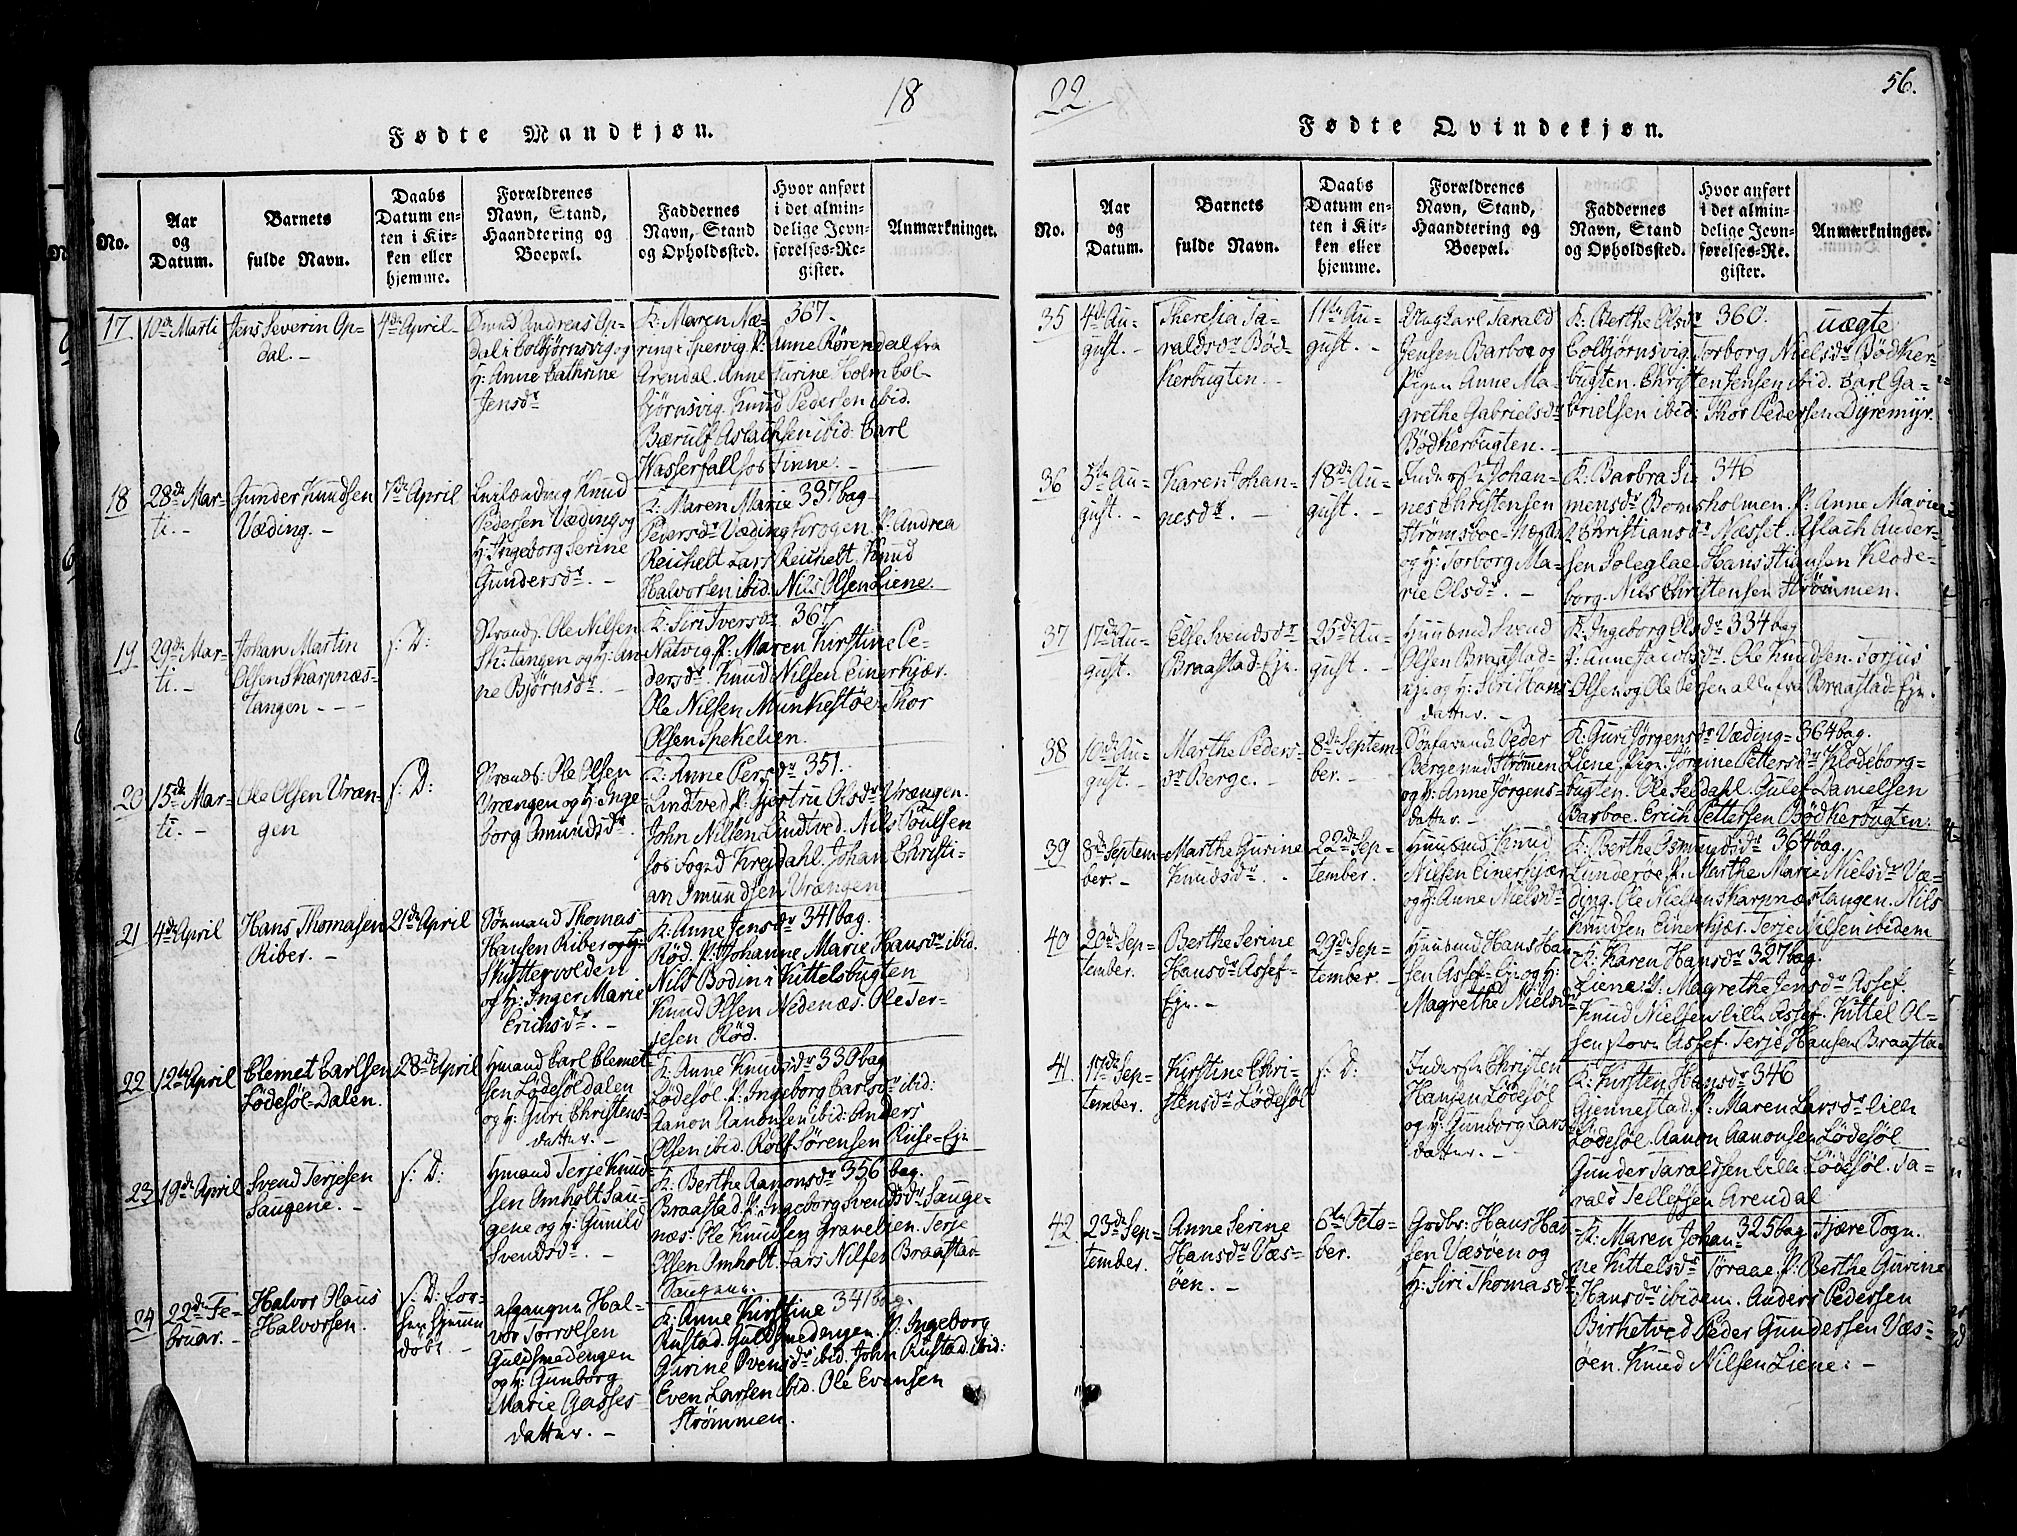 18
Fødte Mandkjøn.
No.
Aar
og
Datum.
Barnets
fulde Navn.
Daabs
Datum en-
ten i Kir-
ken eller
hjemme.
Forældrenes
Navn, Stand,
Haandtering og
Boepæl.
Faddernes
Navn, Stand
og Opholdssted.
Hvor anført
i det almin-
delige Jevn-
førelses-Re-
gister.
Anmærkninger.
17
10de Marti
Jens Severin Op-
dal. -
4de April -
Omund Andreas Op-
dal i Colbjørnsvig og
H: Anne Cathrine
Jensdr
K: Maren Næ- 367.
ring i Spervig P: Anne Rørendal fra
Arendal. Anne Turine Holm Col-
bjørnsvig. Knud Pedersen ibid.
Bærulf Aslachsen ibid. Carl
Wasserfall hos Finne. -
18
28de Mar-
ti. -
Gunder Knudsen
Væding. -
7de April
Knud
Pedersen Væding og
H: Ingeborg Serine
Gundersdr. -
K: Maren Marie 337 bag
Pedersdr Væding Krogen P: Andrea
Reichelt Lars Reichelt. Knud
Halvorsen ibid. Nils Olsen Liene.
19
29de Mar-
ti. -
Johan Martin
Olsen Skarpnæs-
tangen - - -
f: D:
Strands: Ole Nilsen
Sk:tangen og H: An-
ne Bjørnsdr. -
K: Siri Iversdr 367
Natvig P: Maren Kirstine Pe-
dersdr Knud Nilsen Einerkjær.
Ole Nilsen Munkestøe Thor
Olsen Spekelien.
20
15de Mar-
ti. -
Ole Olsen Vræn-
gen
f: D:
Strands: Ole Olsen
Vrængen og H: Inge-
borg Omundsdr.
K: Anne Persdr 351.
Lindtved P: Gjertru Olsdr Vrængen.
John Nilsen Lindtved. Nils Poulsen
hos Fogd Krejdahl. Johan Christi-
an Omundsen Vrængen
21
4de April
Hans Thomasen
Riber. -
21de April
Sømand Thomas
Hansen Riber og H:
Skyttervolden
og H: Inger Marie
Erichsdr. -
K: Anne Jensdr 341 bag.
Rød. P: Johanne Marie Hansdr ibid.
Nils Bodin i Kittelsbugten
Knud Olsen Nedenæs. Ole Ter-
jesen Rød.
22
12te April
Clemet Carlsen
Lødesøl-Dalen.
28de April
Hmand Carl Clemet-
sen Lødesøldalen
og H: Guri Christens-
datter. -
K: Anne Knudsdr 330 bag
Lødesøl. P: Ingeborg Carlsdr ibid:
Aanon Aanonsen ibid: Anders
Olsen ibid. Rolf Sørensen Riise-Eje
23
19de April
Svend Terjesen
Saugene. -
f: D:
Hmand Terje Knud-
sen Omholt Sau-
gene og H: Gunild
Svendsdr. -
K: Berthe Aanonsdr 356 bag.
Braastad P: Ingeborg Svendsdr Sauge-
næs. Ole Knudsen Gravelien. Terje
Olsen Omholt. Lars Nilsen Braastad-
Saugene.
24
22de Fe-
bruar. -
Halvor Olaus
Halvorsen.
f: D: for-
hen hjemme
døbt. -
afgangen Hal-
vor Torrolsen
Guldsmedengen
og H: Gunborg
Marie Gasses-
datter. -
K: Anne Kirstine 341 bag.
Rustad. Guldsmedengen. P: Ingeborg
Gurine Svensdr ibid. John Rustad ibid:
Even Larsen ibid. Ole Evensen
Strømmen.
22.
56.
Fødte Qvindekjøn.
No.
Aar
og
Datum.
Barnets
fulde Navn.
Daabs
Datum en-
ten i Kir-
ken eller
hjemme.
Forældrenes
Navn, Stand,
Haandtering og
Boepæl.
Faddernes
Navn, Stand
og Opholdssted.
Hvor anført
i det almin-
delige Jevn-
førelses-Re-
gister.
Anmærkninger.
35
4de Au-
gust. -
Theresia Ta-
raldsdr Bød-
kerbugten. -
11te Au-
gust. -
Ungkarl Tarald
Jensen Barboe og
Pigen Anne Ma-
grethe Gabrielsdr
Bødkerbugten. -
K: Berthe Olsdr 360. uægte
Colbjørnsvig. Torborg Nielsdr Bødker-
bugten. Christen Jensen ibid. Carl Ga-
brielsen ibid: Thor Pedersen Dyremyr.
36
5te Au-
gust. -
Karen Johan-
nesdr. -
18de Au-
gust. -
Inderste Johan-
nes Christensen
Strømsboe-Næsset
og H: Torborg Ma-
rie Olsdr. -
K: Barbra Si- 346
mensdr Bomsholmen. P: Anne Marie
Christiansdr Næsset. Aslach Ander-
sen Soleglae. Hans Stiansen Klode-
borg. Nils Christensen Strømmen.
37
17de Au-
gust.
Elle Svendsdr
Braastad-Eje.
25de Au-
gust. -
Huusmd Svend
Olsen Braastad-
eje og H: Siri Hans-
datter. -
K: Ingeborg Olsdr 334 bag
P: Anne Jacobsdr. Ole Knudsen. Torjus
Olsen og Ole Persen alle fra Braastad-Eje.
38
10de Au-
gust. -
Marthe Peders-
dr Berge. -
8de Septem-
ber. -
Søefarende Peder
Berge ved Strømen
og H: Anne Jørgens-
datter. -
K: Guri Jørgensdr Væding- 364 bag.
Liene. Pige Jørgine Pettersdr Klodeborg-
bugten. Ole Seldahl. Gulef Danielsen
Barboe. Erich Pettersen Bødkerbugten.
39
8de Septem-
ber. -
Marthe Gurine
Knudsdr. -
22de Sep-
tember.
Huusmd Knud
Nilsen Einerkjær
og H: Anne Nielsdr
K: Berthe Osmundsdr 364 bag.
Lunderoe P: Marthe Marie Nielsdr Væ-
ding. Ole Nielsen Skarpnæstangen. Nils
Knudsen Einerkjær. Terje Nilsen ibidem
40
20de Sep-
tember.
Berthe Serine
Hansdr Assef-
Eje. -
29de Sep-
tember. -
Huusmd Hans Han-
sen Assef-Eje og H:
Magrethe Nielsdr
K: Karen Hansdr 327 bag.
Liene: P: Magrethe Jensdr Assef.
Knud Nielsen lille Assef. Kittel Ol-
sen store Assef. Terje Hansen Braastad
41.
17de Sep-
tember.
Kirstine Chri-
stensdr Lødesøl
f: D:
Inderste Christen
Hansen Lødesøl
og H: Gunborg Lars-
datter. -
K: Kirsten Hansdr 346
Gjennestad. P: Maren Larsdr lille
Lødesøl. Aanon Aanonsen Lødesøl
Gunder Taraldsen lille Lødesøl. Ta-
rald Tellefsen Arendal
42
23de Sep-
tember.
Anne Serine
Hansdr Væs-
øen. -
6te Octo-
ber.
Grdbr: Hans Han-
sen Væsøen og
H: Siri Thomasdr
K: Maren Johan- 325 bag Fjære Sogn.
ne Kittelsdr Tøraae P: Berthe Gurine
Hansdr ibidem. Anders Pedersen
Birketved Peder Gundersen Væs-
øen. Knud Nilsen Liene: -